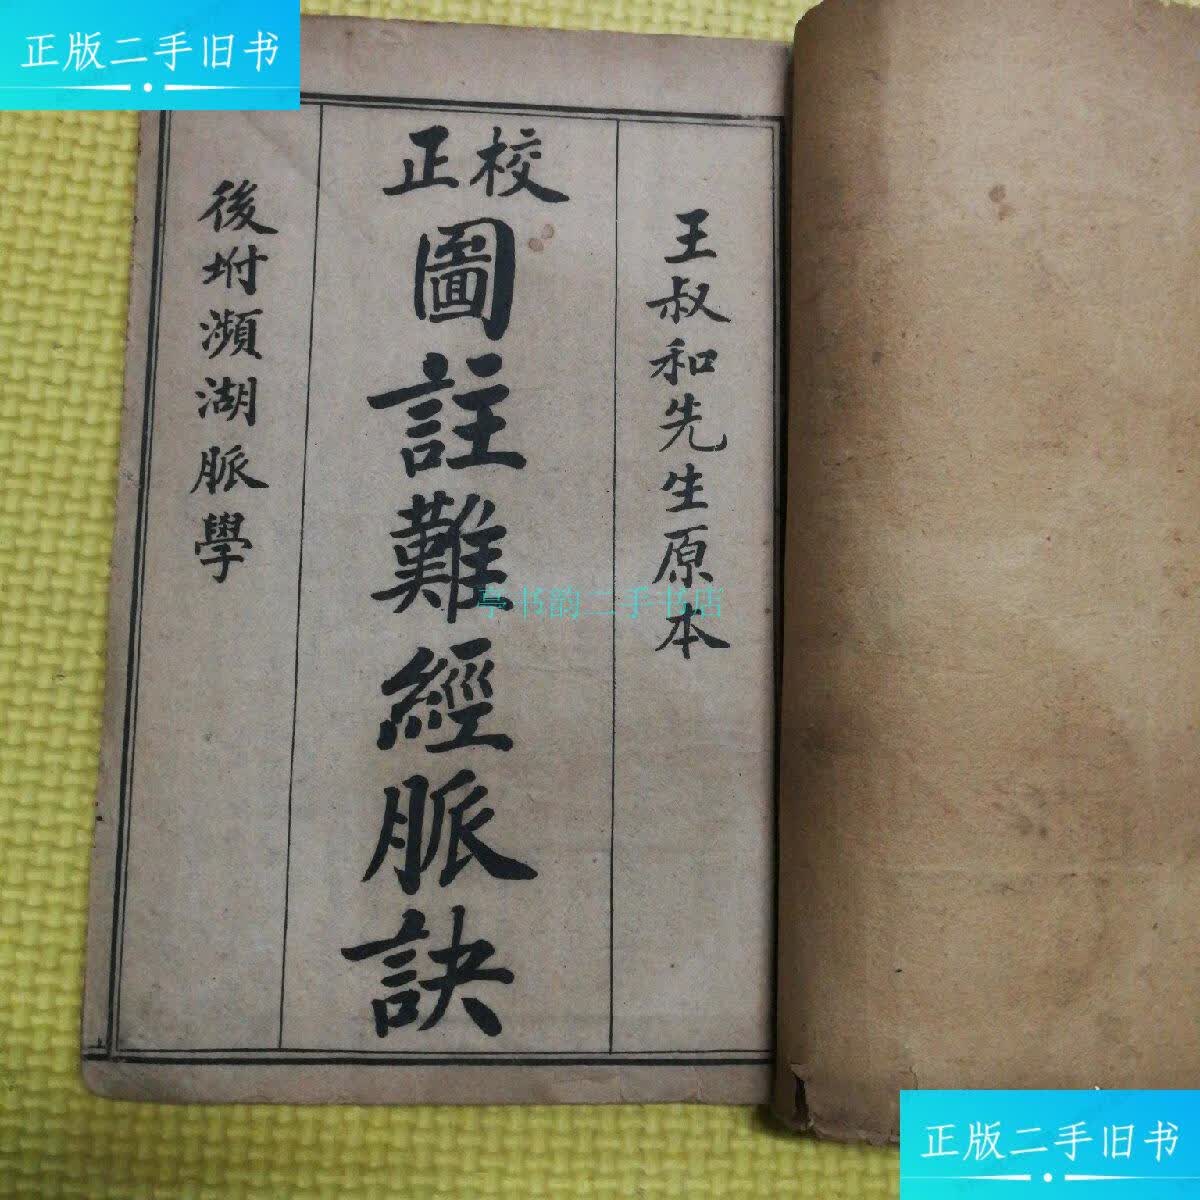 正版二手旧书
王叔和先生原本
校正
圖註難經脈訣
後坿瀕湖脈學
亭书韵二手书店
正版二手旧书